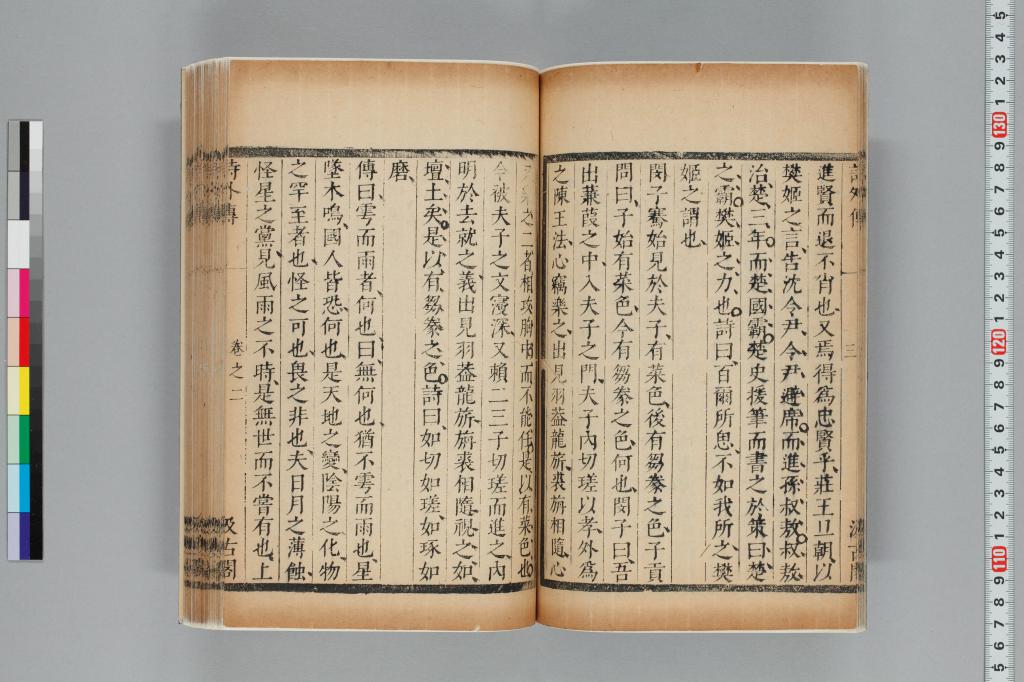 進賢而退不肖也又焉得爲忠賢乎莊王旦朝以
樊姬之言告沈令尹令尹避席而進孫叔敖叔敖
治楚三年而楚國霸楚史援筆而書之於策曰楚
之霸樊姬之力也詩曰百爾所思不如我所之樊
姬之謂也
閔子騫始見於夫子有菜色後有芻豢之色子貢
問曰子始有菜色今有芻豢之色何也閔子曰吾
出蒹葭之中入夫子之門夫子內切瑳以孝外爲
之陳王法心竊樂之出見羽蓋龍旂裘旃相隨心
又樂之二者相攻胸中而不能任是以有菜色也
今被夫子之文寖深又賴二三子切瑳而進之內
明於去就之義出見羽蓋龍旂旃裘相隨視之如
壇土矣是以有芻豢之色詩曰如切如瑳如琢如
磨
傳曰雩而雨者何也曰無何也猶不雩而雨也星
墜木鳴國人皆恐何也是天地之變陰陽之化物
之罕至者也怪之可也畏之非也夫日月之薄蝕
怪星之黨見風雨之不時是無世而不嘗有也上
詩外傳
卷之二
汲古閣